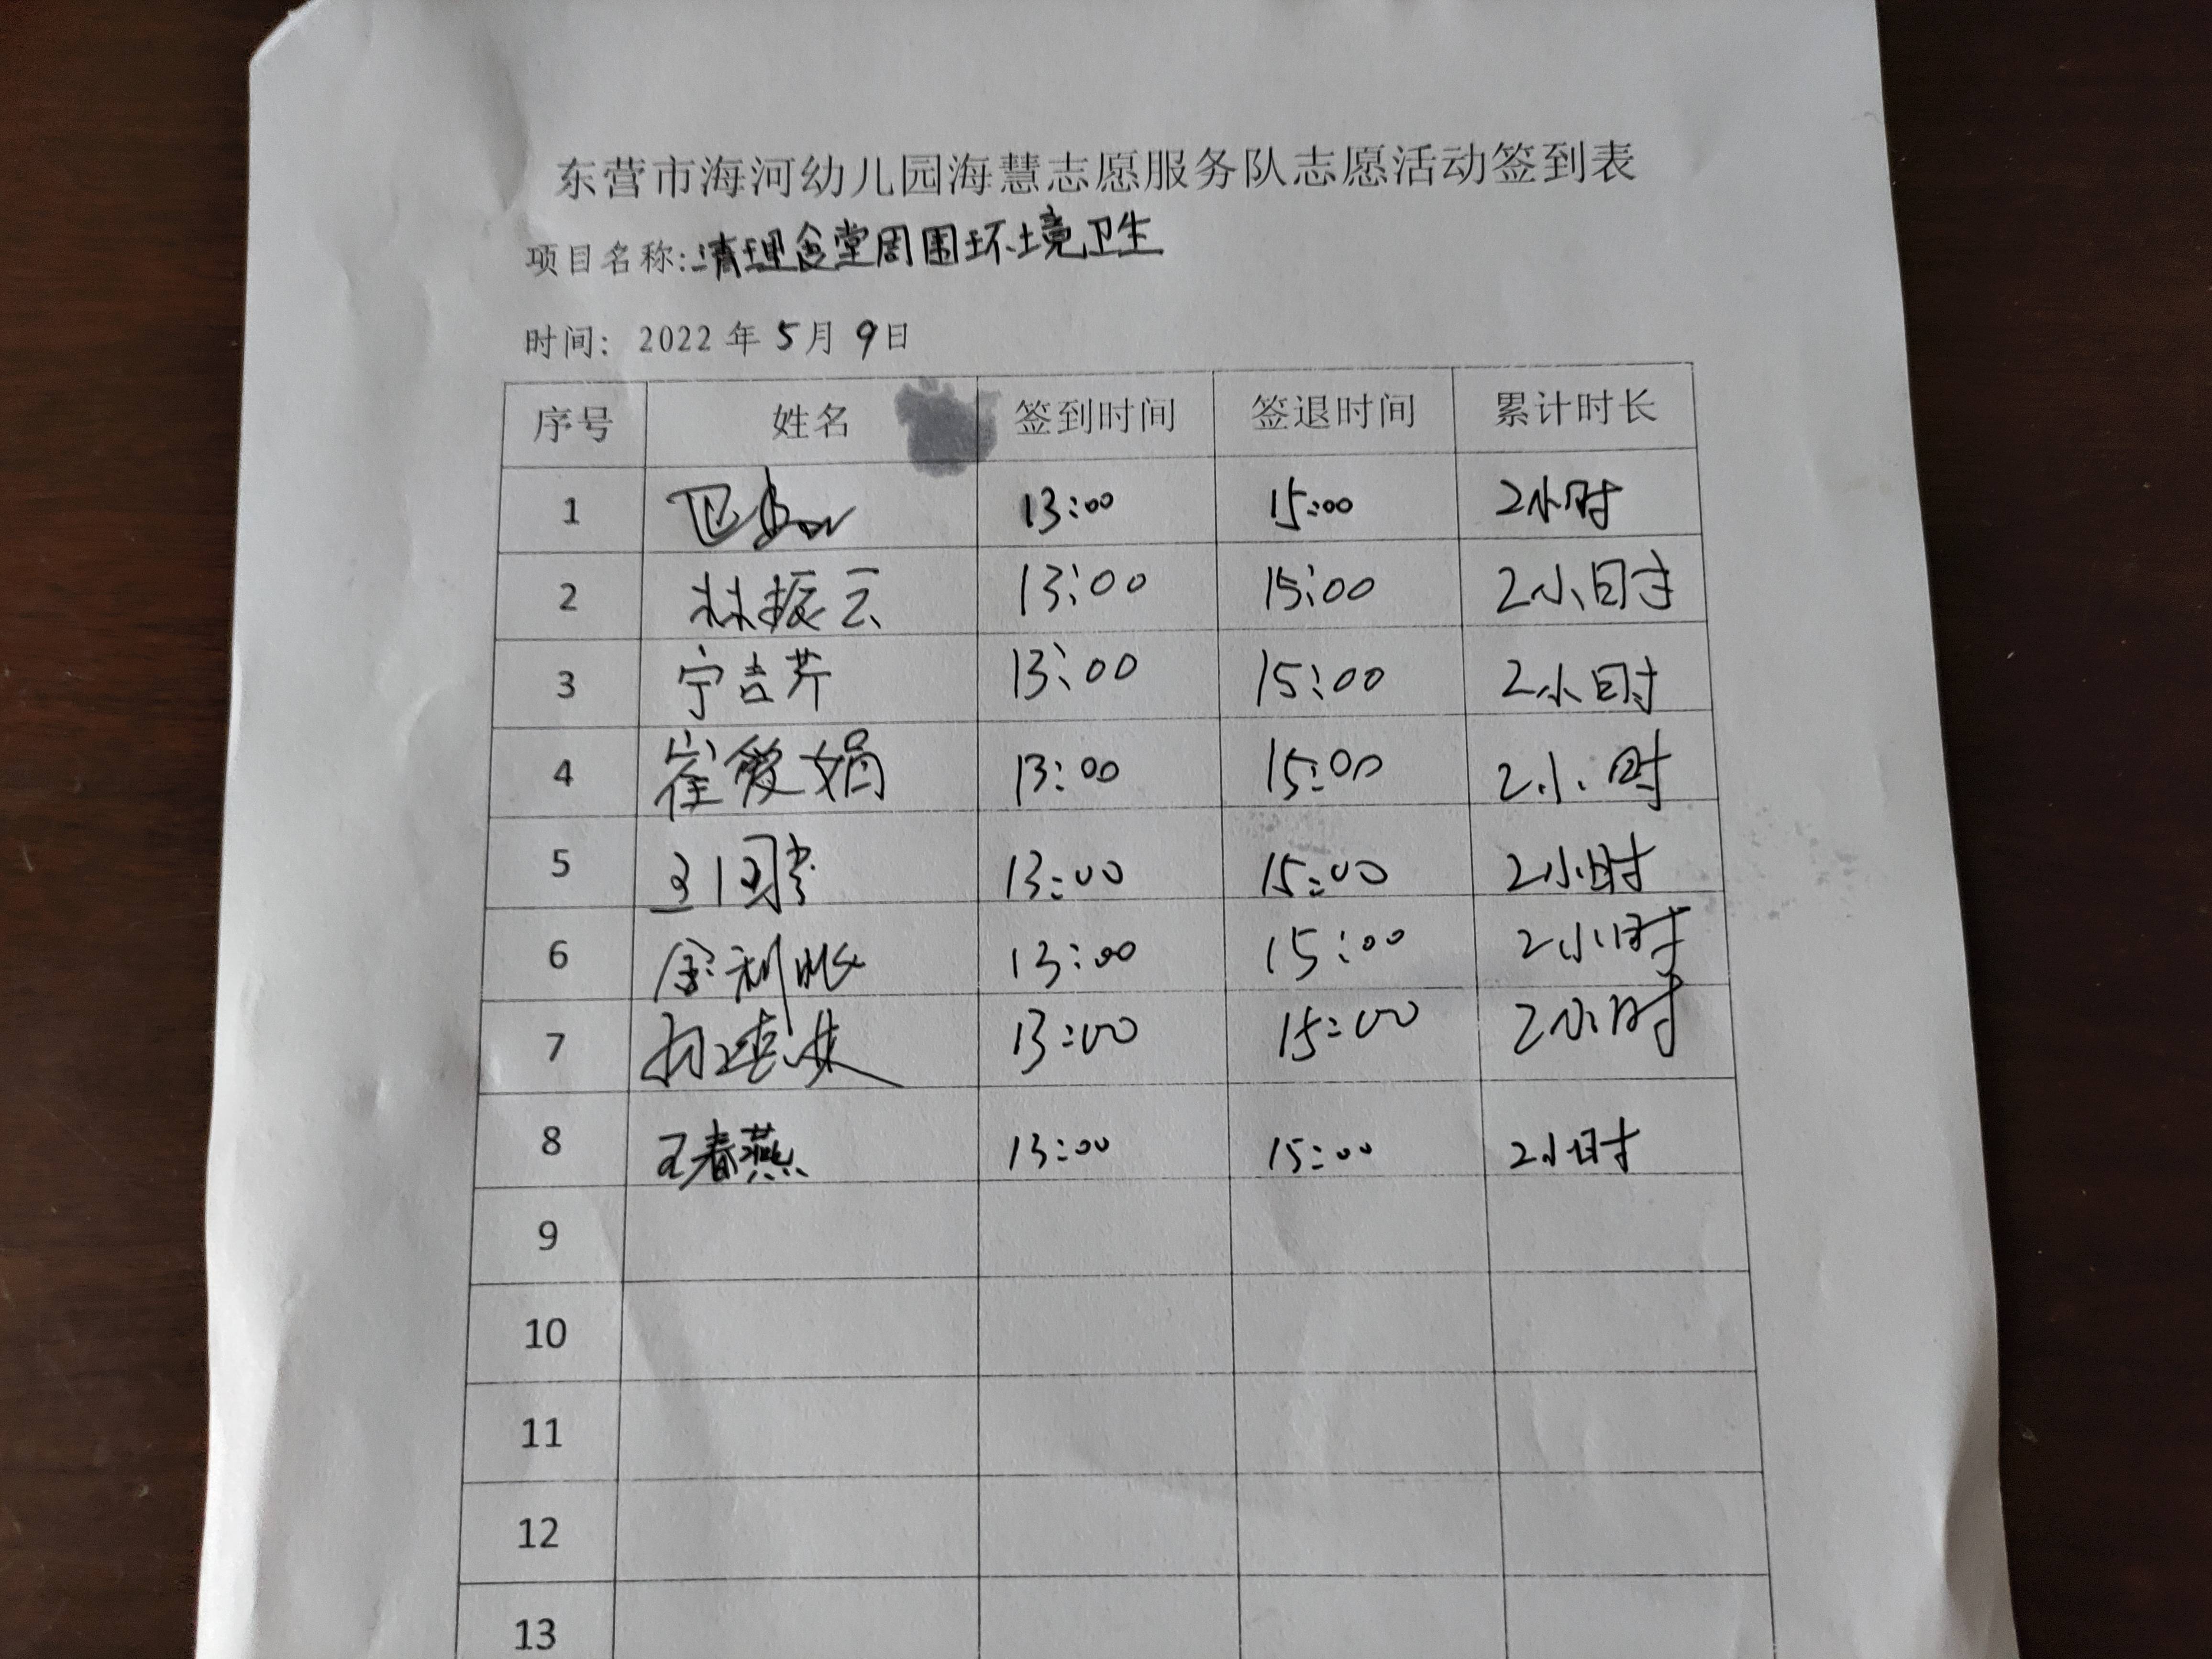 东营市海河幼儿园海慧志愿服务队志愿活动签到表
项目名称:清理食堂周围环境卫生
时间: 2022 年 5 月 9 日
序号 姓名 签到时间 签退时间 累计时长
1 13:00 15:00 2小时
2 林振云 13:00 15:00 2小时
3 宁吉芹 13:00 15:00 2小时
4 崔爱娟 13:00 15:00 2小时
5 13:00 15:00 2小时
6 13:00 15:00 2小时
7 13:00 15:00 2小时
8 王春燕 13:00 15:00 2小时
9
10
11
12
13